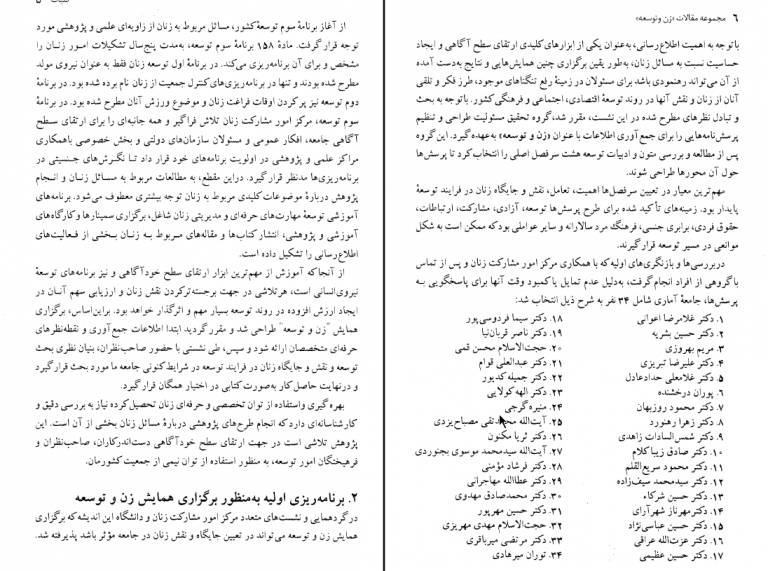 ۶ مجموعه مقالات «زن و توسعه»
باتوجه به اهمیت اطلاع‌رسانی، به‌عنوان یکی از ابزارهای کلیدی ارتقای سطح آگاهی و ایجاد
حساسیت نسبت به مسائل زنان، به‌طور یقین برگزاری چنین همایش‌هایی و نتایج به‌دست آمده
از آن می‌تواند رهنمودی باشد برای مسئولان در زمینهٔ رفع تنگناهای موجود، طرز فکر و تلقی
آنان از زنان و نقش آنها در روند توسعهٔ اقتصادی، اجتماعی و فرهنگی کشور. باتوجه به بحث
و تبادل نظرهای مطرح شده در این نشست، مقرر شد، گروه تحقیق مسئولیت طراحی و تنظیم
پرسش‌نامه‌هایی را برای جمع‌آوری اطلاعات با عنوان «زن و توسعه» به‌عهده گیرد. این گروه
پس از مطالعه و بررسی متون و ادبیات توسعه هشت سرفصل اصلی را انتخاب کرد تا پرسش‌ها
حول آن محورها طراحی شوند.
مهم‌ترین معیار در تعیین سرفصل‌ها اهمیت، تعامل، نقش و جایگاه زنان در فرایند توسعهٔ
پایدار بود. زمینه‌های تأکید شده برای طرح پرسش‌ها توسعه، آزادی، مشارکت، ارتباطات،
حقوق فردی، برابری جنسی، فرهنگ مرد سالارانه و سایر عواملی بود که ممکن است به شکل
موانعی در مسیر توسعه قرار گیرند.
در بررسی‌ها و بازنگری‌های اولیه که با همکاری مرکز امور مشارکت زنان و پس از تماس
با گروهی از افراد انجام گرفت، به‌دلیل عدم تمایل یا کمبود وقت آنها برای پاسخگویی به
پرسش‌ها، جامعهٔ آماری شامل ۳۴ نفر به شرح ذیل انتخاب شد:
۱. دکتر غلامرضا اعوانی
۲. دکتر حسین بشریه
۳. مریم بهروزی
۴. دکتر علیرضا تبریزی
۵. دکتر غلامعلی حدادعادل
۶. پوران درخشنده
۷. دکتر محمود روزبهان
۸. دکتر زهرا رهنورد
۹. دکتر شمس‌السادات زاهدی
۱۰. دکتر صادق زیباکلام
۱۱. دکتر محمود سریع‌القلم
۱۲. دکتر سیدمحمد سیف‌زاده
۱۳. دکتر حسین شرکاء
۱۴. دکتر مهرناز شهرآرای
۱۵. دکتر حسین عباسی‌نژاد
۱۶. دکتر عزت‌الله عراقی
۱۷. دکتر حسین عظیمی
۱۸. دکتر سیما فردوسی‌پور
۱۹. دکتر ناصر قربان‌نیا
۲۰. حجت‌الاسلام محسن قمی
۲۱. دکتر عبدالعلی قوام
۲۲. دکتر جمیله کدیور
۲۳. دکتر الهه کولایی
۲۴. منیره گرجی
۲۵. آیت‌الله محمدتقی مصباح‌یزدی
۲۶. دکتر ثریا مکنون
۲۷. آیت‌الله سیدمحمد موسوی بجنوردی
۲۸. دکتر فرشاد مؤمنی
۲۹. دکتر عطاالله مهاجرانی
۳۰. دکتر محمدصادق مهدوی
۳۱. دکتر حسین مهرپور
۳۲. حجت‌الاسلام مهدی مهریزی
۳۳. دکتر مرتضی میرباقری
۳۴. توران میرهادی
از آغاز برنامهٔ سوم توسعهٔ کشور، مسائل مربوط به زنان از زاویه‌ای علمی و پژوهشی مورد
توجه قرار گرفت. مادهٔ ۱۵۸ برنامهٔ سوم توسعه، به‌مدت پنج‌سال تشکیلات امور زنان را
مشخص و برای آن برنامه‌ریزی می‌کند. در برنامهٔ اول توسعه زنان فقط به عنوان نیروی مولد
مطرح شده بودند و تنها در برنامه‌ریزی‌های کنترل جمعیت از زنان نام برده شده بود. در برنامهٔ
دوم توسعه نیز پر کردن اوقات فراغت زنان و موضوع ورزش آنان مطرح شد. در برنامهٔ
سوم توسعه، مرکز امور مشارکت زنان تلاش فراگیر و همه جانبه‌ای را برای ارتقای سطح
آگاهی جامعه، افکار عمومی و مسئولان سازمان‌های دولتی و بخش خصوصی با همکاری
مراکز علمی و پژوهشی در اولویت برنامه‌های خود قرار داد تا نگرش‌های جنسیتی در
برنامه‌ریزی‌ها مدنظر قرار گیرد. در این مقطع، به مطالعات مربوط به مسائل زنان و انجام
پژوهش دربارهٔ موضوعات کلیدی مربوط به زنان توجه بیشتری معطوف می‌شود. برنامه‌های
آموزشی توسعهٔ مهارت‌های حرفه‌ای و مدیریتی زنان شاغل، برگزاری سمینارها و کارگاه‌های
آموزشی و پژوهشی، انتشار کتاب‌ها و مقاله‌های مربوط به زنان بخشی از فعالیت‌های
اطلاع‌رسانی را تشکیل داده است.
از آنجا که آموزش از مهم‌ترین ابزار ارتقای سطح خودآگاهی و نیز برنامه‌های توسعهٔ
نیروی انسانی است، هر تلاشی در جهت برجسته‌تر کردن نقش زنان و ارزیابی سهم آنان در
ایجاد ارزش افزوده در روند توسعه بسیار مهم و اثرگذار خواهد بود. براین‌اساس، برگزاری
همایش "زن و توسعه" طراحی شد و مقرر گردید ابتدا اطلاعات جمع‌آوری و نقطه‌نظرهای
حرفه‌ای متخصصان ارائه شود و سپس، طی نشستی با حضور صاحب‌نظران، بنیان نظری بحث
توسعه و نقش و جایگاه زنان در فرایند توسعه در شرایط کنونی جامعه ما مورد بحث قرار گیرد
و درنهایت حاصل کار به‌صورت کتابی در اختیار همگان قرار گیرد.
بهره گیری و استفاده از توان تخصصی و حرفه‌ای زنان تحصیل‌کرده نیاز به بررسی دقیق و
کارشناسانه‌ای دارد که انجام طرح‌های پژوهشی دربارهٔ مسائل زنان بخشی از آن است. این
پژوهش تلاشی است در جهت ارتقای سطح خودآگاهی دست‌اندرکاران، صاحب‌نظران و
فرهیختگان امور توسعه، به منظور استفاده از توان نیمی از جمعیت کشورمان.
۲. برنامه‌ریزی اولیه به‌منظور برگزاری همایش زن و توسعه
در گردهمایی و نشست‌های متعدد مرکز امور مشارکت زنان و دانشگاه این اندیشه که برگزاری
همایش زن و توسعه می‌تواند در تعیین جایگاه و نقش زنان در جامعه مؤثر باشد پذیرفته شد.